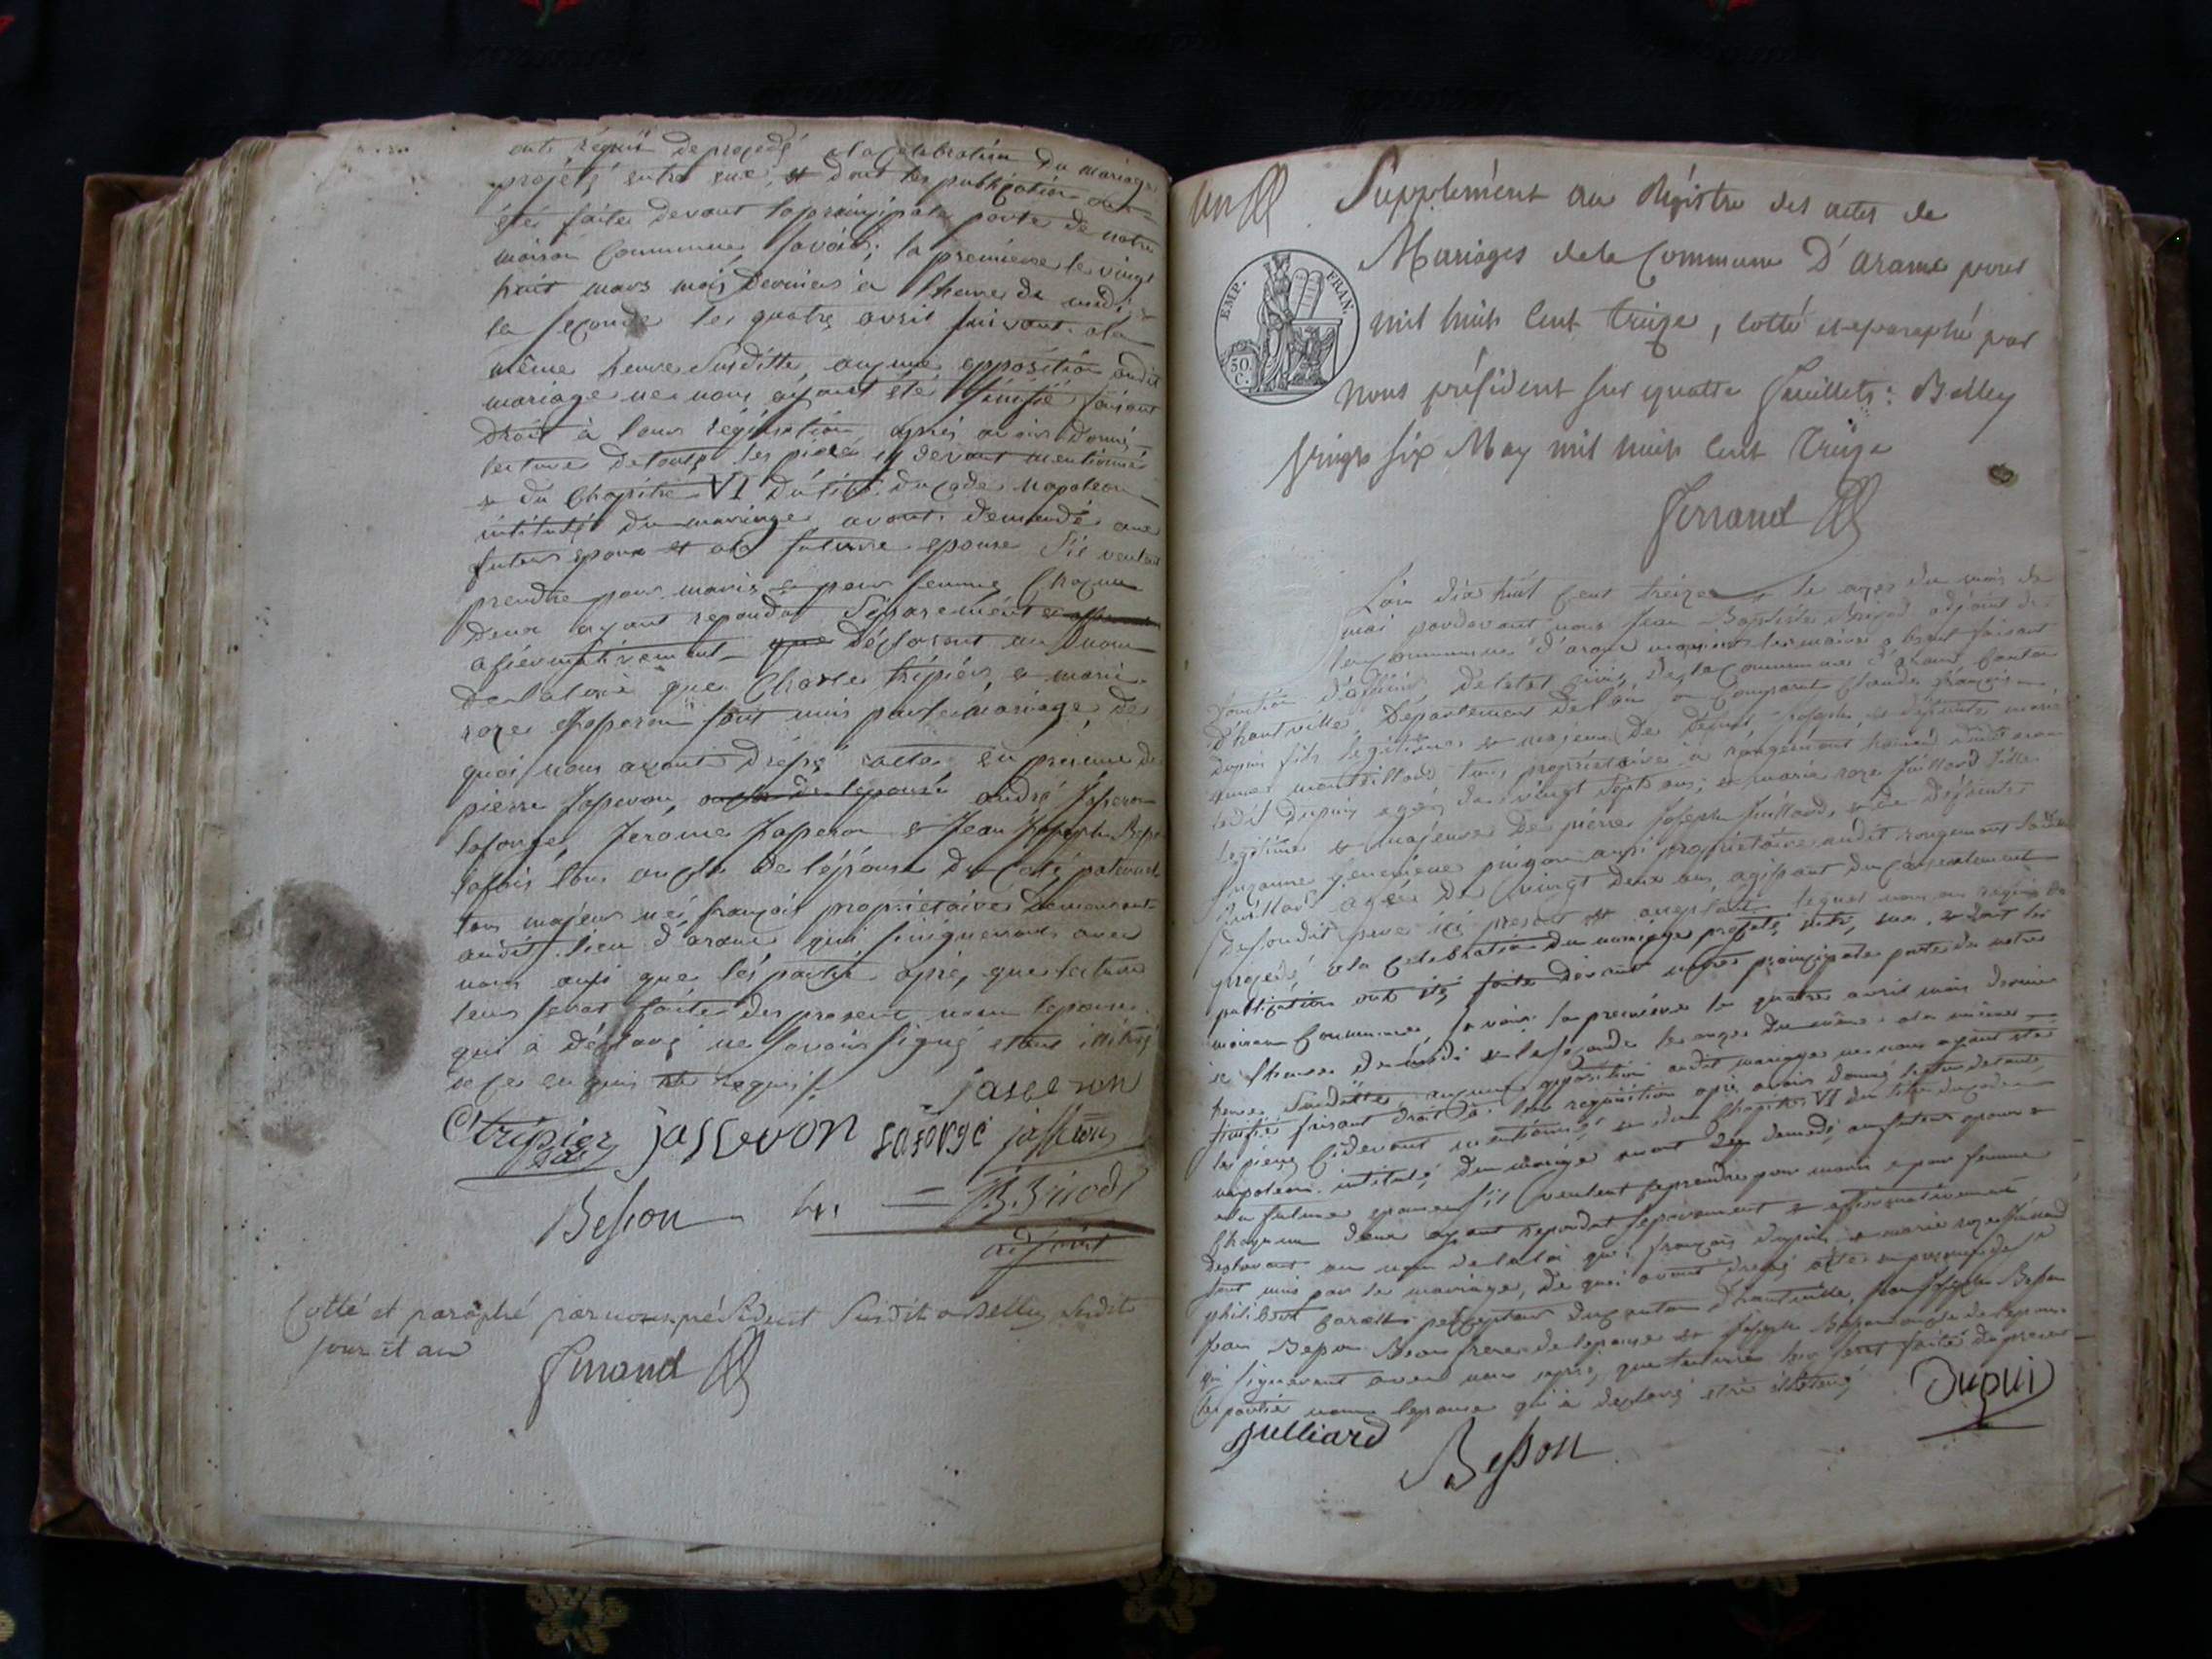 ont réquis de procedé à la celebration du mariage
projété entre eux, et dont les publication ont
étés faites devant la principale porte de notre
maison Commune, savoir; la première le vingt
huit mars mois dernier à l'heure de midi, et
la seconde le quatre avril suivant. a la
même heure susditte, aucune opposition audit
mariage ne nous ayant été sinifié faisant
droit à leurs réquisition après avoir donné
lecture de toutes les pièces cy devant mentionné
& du Chapitre VI du titre du code Napoleon
intitulé du mariage avont demandé aux
futurs epoux et a la future epouse s'ils veulent
prendre pour maris et pour femme Chaqun
deux ayant repondut séparement et
afiermativement que déclarant au nom
de la loix que Charle tripier & marie
roze Jasperon sont unis par le mariage de
quoi nous avont dressé acte en présence de
pierre Jaseron, oncle de l'epouse andré Jaseron
laforge, Jerome Jaseron & Jean Joseph Besson
tous oncle de l'épouse du Coté paternel
tous majeur né français propriétaires demeurant
audit lieu d'arane qui singneronts avec
nous ausi que les partie après que lecture
leurs serat faite des present nom l'epouse
qui à déclaré ne savoir signé etant illitéré
de ce enquis et requis /.
Ctripier jasseron laforge jasseron jasseron
Besson = JB Brirod
adjoint
Cotté et paraphé par nous président susdit a Belley lesdits
jour et an
Ferrand
un
Supplément au Régistre des actes de
Mariages de la Commune D'arane pour
EMP. FRAN.
50 C.
mil huit Cent treize, cotté et paraphé par
nous président sur quatre feuillets: Belley
vingt six May mil huit Cent treize
Ferrand
L'an dix huit Cent treize & le onze du mois de
mai pardevant nous Jean Baptiste Brirod adjoint de
la Commune d'arane le maire absent faisant
fonction d'officier de l'etat civil de la Commune d'arane Canton
d'hautville, Département de l'ain a Comparut Claude françois
dupuis fils légitime & majeur de défunt Joseph, & défunte marie
tous propriétaire à rougemont
ledit dupuis agé de vingt sept ans; & marie roze Juillard fille
légitime & majeure de pierre Joseph Juillard, & de défunte
Suzanne aussi propriétaire audit rougemont ladite
Juillard agée de vingt deux ans agissant du Consentement
de sondit père ici present et aceptant lequel nous on requis de
procedé a la celebration du mariage projeté entre eux, & dont les
publication ont été faite devant notre principale porte de notre
maison Commune, savoir la première le quatre avril mois dernier
à l'heure de midi & la seconde le onze du même a la même
heure susditte, aucune opposition audit mariage ne nous ayant été
sinifié faisant droit à leur requisition après avoir donné lecture de toute
les pièces cidevant mentionné & du Chapitre VI du titre du code
napoleon intitulé du mariage avont demandé au futur epoux &
a la future epouse s'il veulent se prendre pour maris & pour femme
Chaqun deux ayant repondut separement & affiermativement
declarant au nom de la loi que françois dupuis & marie roze Juillard
sont unis par le mariage, de quoi avont dressé acte en presence de
philibert percepteur du canton d'hautville, Jean Joseph Besson
Jean Besson Beau frere de l'epouse et Joseph Besson oncle de l'epouse
qui signeront avec nous après que lecture leur serat faite du present
les partie nom l'epouse qui à declaré etre illitéré
Dupui
Julliard
Besson